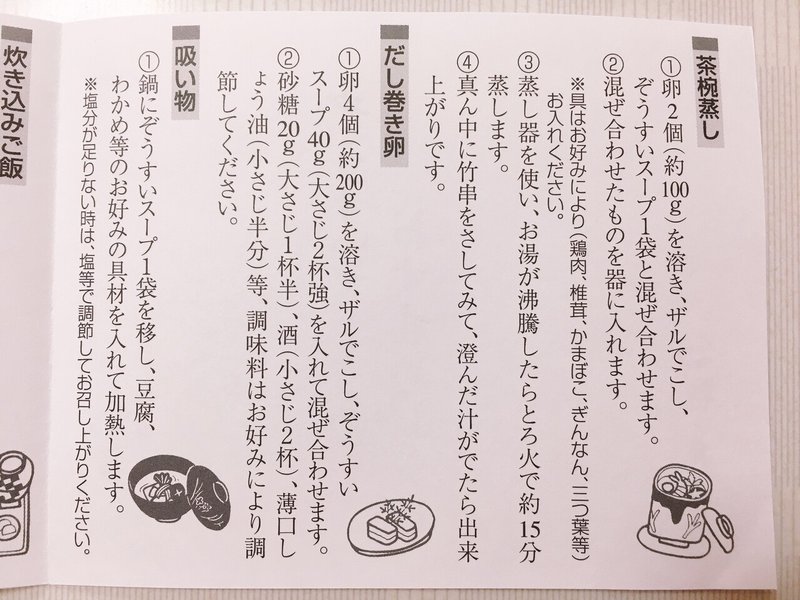 茶椀蒸し
①卵2個(約100g)を溶き、ザルでこし、
ぞうすいスープ1袋と混ぜ合わせます。
②混ぜ合わせたものを器に入れます。
※具はお好みにより(鶏肉、椎茸、かまぼこ、ぎんなん、三つ葉等)
お入れください。
③蒸し器を使い、お湯が沸騰したらとろ火で約15分
蒸します。
④真ん中に竹串をさしてみて、澄んだ汁がでたら出来
上がりです。
だし巻き卵
①卵4個(約200g)を溶き、ザルでこし、ぞうすい
スープ40g(大さじ2杯強)を入れて混ぜ合わせます。
②砂糖20g(大さじ1杯半)、酒(小さじ2杯)、薄口し
ょう油(小さじ半分)等、調味料はお好みにより調
節してください。
吸い物
①鍋にぞうすいスープ1袋を移し、豆腐、
わかめ等のお好みの具材を入れて加熱します。
※塩分が足りない時は、塩等で調節してお召し上がりください。
炊き込みご飯